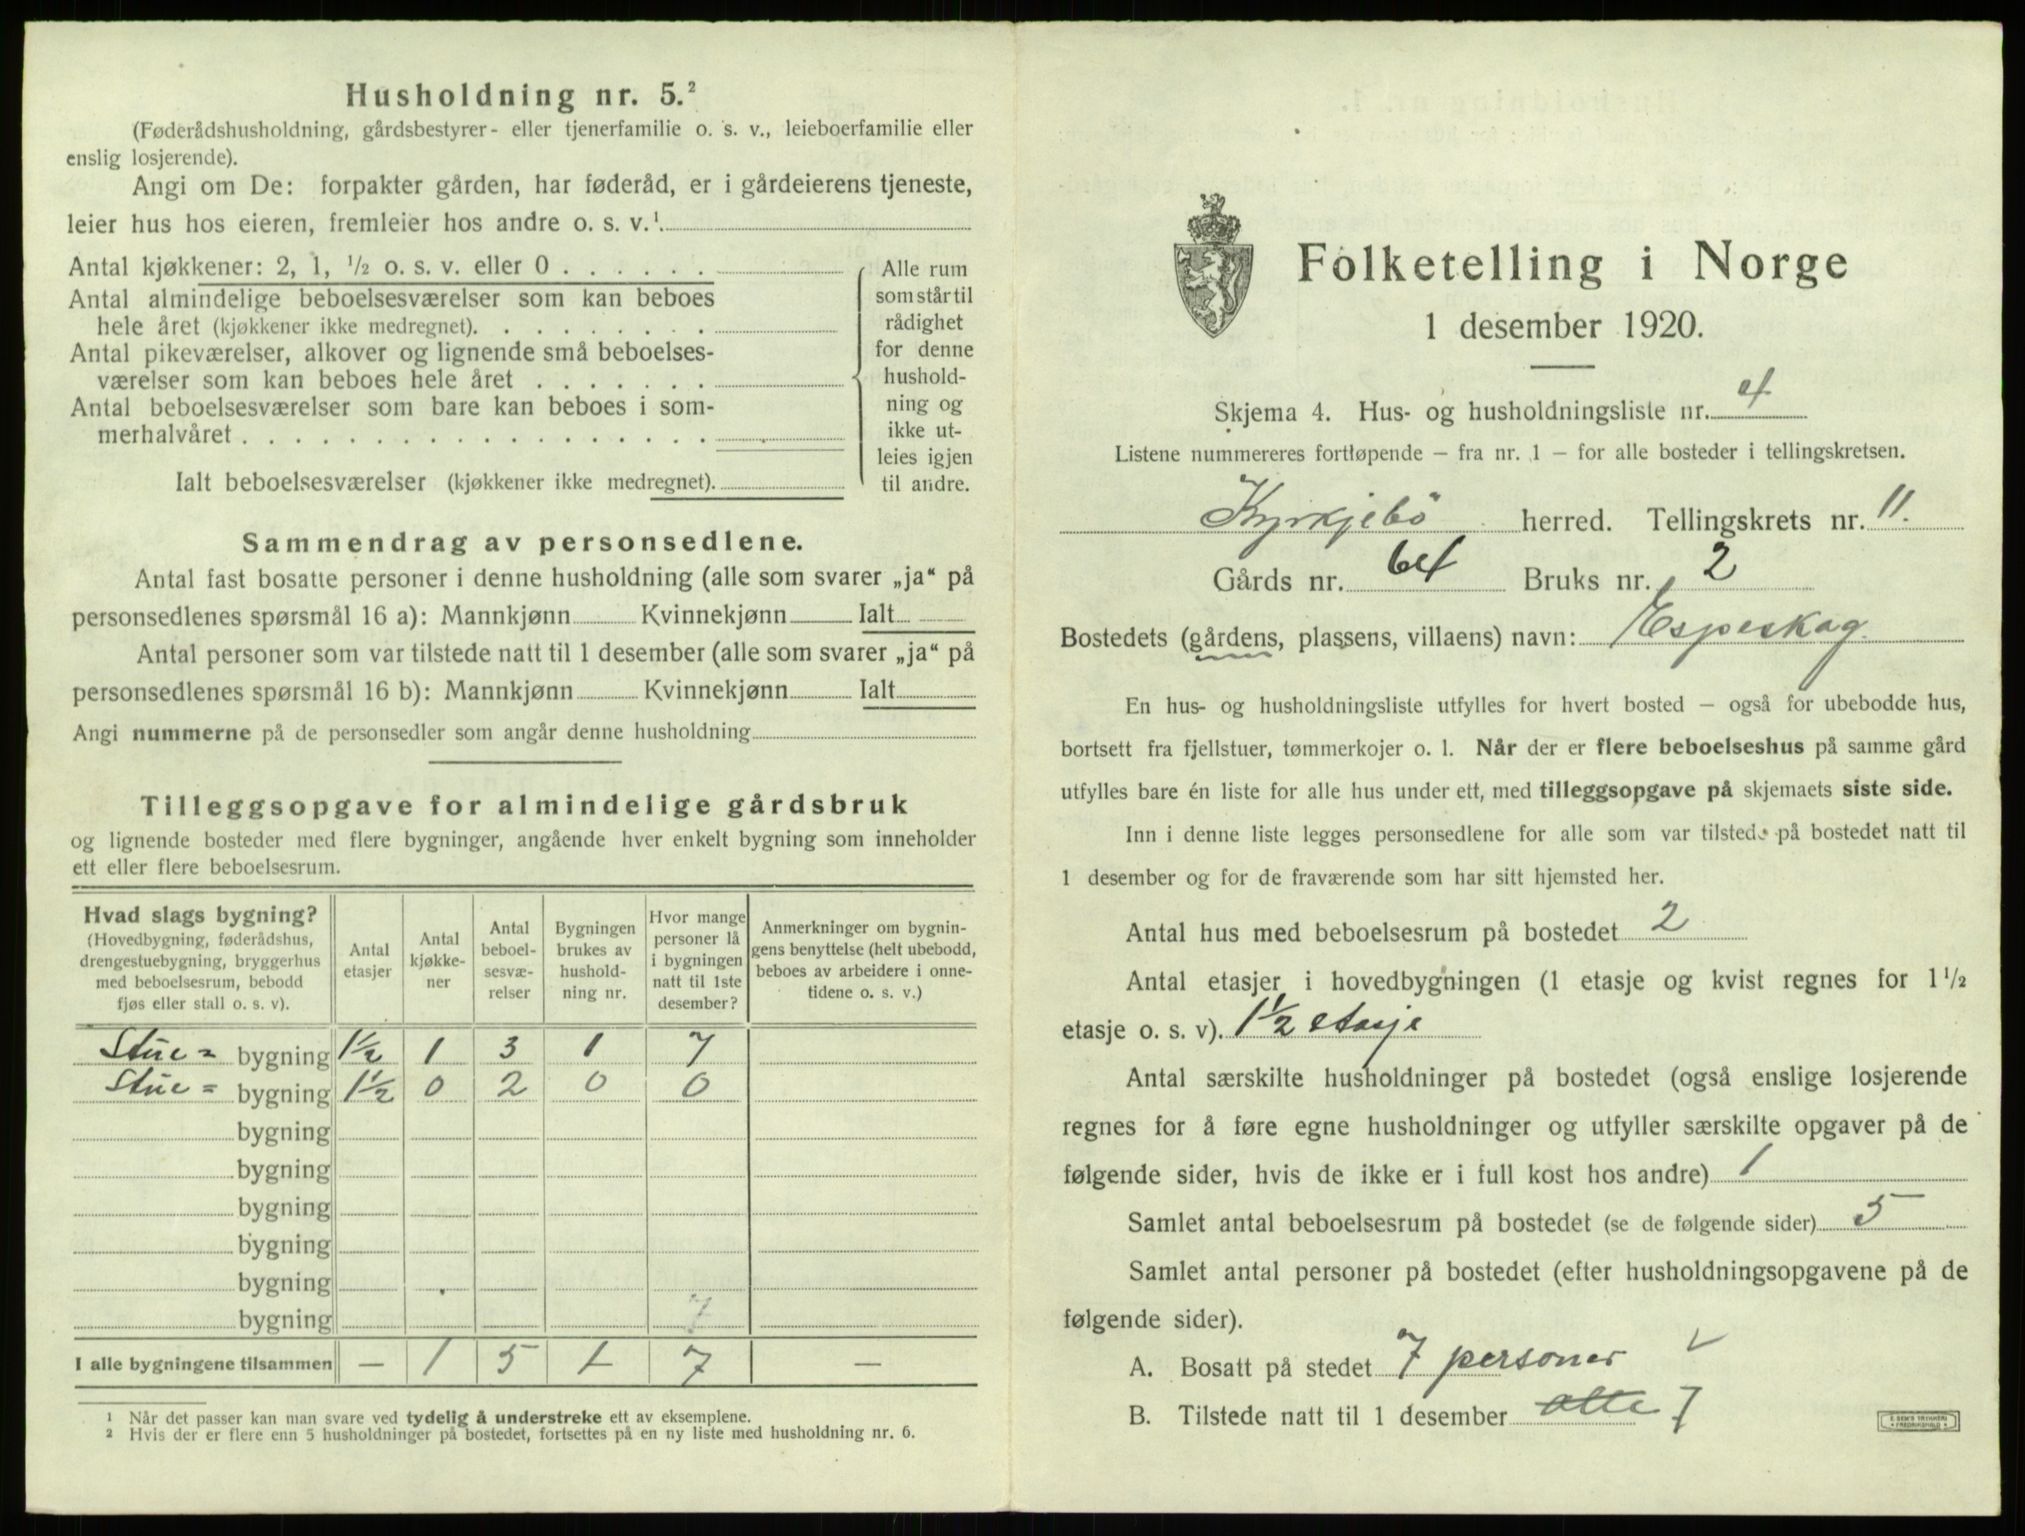 Husholdning nr. 5.²
(Føderådshusholdning, gårdsbestyrer- eller tjenerfamilie o. s. v., leieboerfamilie eller
enslig losjerende).
Angi om De: forpakter gården, har føderåd, er i gårdeierens tjeneste,
leier hus hos eieren, fremleier hos andre o. s. v.¹
Antal kjøkkener: 2, 1, ½ o. s. v. eller 0 . . . . . .
Antal almindelige beboelsesværelser som kan beboes
hele året (kjøkkener ikke medregnet). . . . . . . . .
Antal pikeværelser, alkover og lignende små beboelses-
værelser som kan beboes hele året . . . . . . .
Antal beboelsesværelser som bare kan beboes i som-
merhalvåret . . . . . . . . . . . . . . . . . .
Ialt beboelsesværelser (kjøkkener ikke medregnet).
Alle rum
som står til
rådighet
for denne
hushold-
ning og
ikke ut-
leies igjen
til andre.
Sammendrag av personsedlene.
Antal fast bosatte personer i denne husholdning (alle som svarer „ja“ på
personsedlenes spørsmål 16 a): Mannkjønn Kvinnekjønn Ialt
Antal personer som var tilstede natt til 1 desember (alle som svarer „ja“ på
personsedlenes spørsmål 16 b): Mannkjønn Kvinnekjønn Ialt
Angi nummerne på de personsedler som angår denne husholdning
Tilleggsopgave for almindelige gårdsbruk
og lignende bosteder med flere bygninger, angående hver enkelt bygning som inneholder
ett eller flere beboelsesrum.
Hvad slags bygning?
(Hovedbygning, føderådshus,
drengestuebygning, bryggerhus
med beboelsesrum, bebodd
fjøs eller stall o. s. v).
Antal
etasjer
Antal
kjøkke-
ner
Antal
beboel-
sesvæ-
relser
Bygningen
brukes av
hushold-
ning nr.
Hvor mange
personer lå
i bygningen
natt til 1ste
desember?
Anmerkninger om bygnin-
gens benyttelse (helt ubebodd,
beboes av arbeidere i onne-
tidene o. s. v.)
Stue= bygning 1½ 1 3 1 7
Stue= bygning 1½ 0 2 0 0
bygning
bygning
bygning
bygning
bygning
bygning 7
I alle bygningene tilsammen — 1 5 1 7 —
1 Når det passer kan man svare ved tydelig å understreke ett av eksemplene.
2 Hvis der er flere enn 5 husholdninger på bostedet, fortsettes på en ny liste med husholdning nr. 6.
Folketelling i Norge
1 desember 1920.
Skjema 4. Hus- og husholdningsliste nr. 4
Listene nummereres fortløpende – fra nr. 1 – for alle bosteder i tellingskretsen.
Kyrkjebö herred. Tellingskrets nr. 11.
Gårds nr. 64 Bruks nr. 2
Bostedets (gårdens, plassens, villaens) navn: Espeskog
En hus- og husholdningsliste utfylles for hvert bosted – også for ubebodde hus,
bortsett fra fjellstuer, tømmerkojer o. l. Når der er flere beboelseshus på samme gård
utfylles bare én liste for alle hus under ett, med tilleggsopgave på skjemaets siste side.
Inn i denne liste legges personsedlene for alle som var tilstede på bostedet natt til
1 desember og for de fraværende som har sitt hjemsted her.
Antal hus med beboelsesrum på bostedet 2
Antal etasjer i hovedbygningen (1 etasje og kvist regnes for 1½
etasje o. s. v). 1½ etasje
Antal særskilte husholdninger på bostedet (også enslige losjerende
regnes for å føre egne husholdninger og utfyller særskilte opgaver på de
følgende sider, hvis de ikke er i full kost hos andre) 1
Samlet antal beboelsesrum på bostedet (se de følgende sider) 5
Samlet antal personer på bostedet (efter husholdningsopgavene på de
følgende sider).
A. Bosatt på stedet 7 personer ✓
B. Tilstede natt til 1 desember otte 7